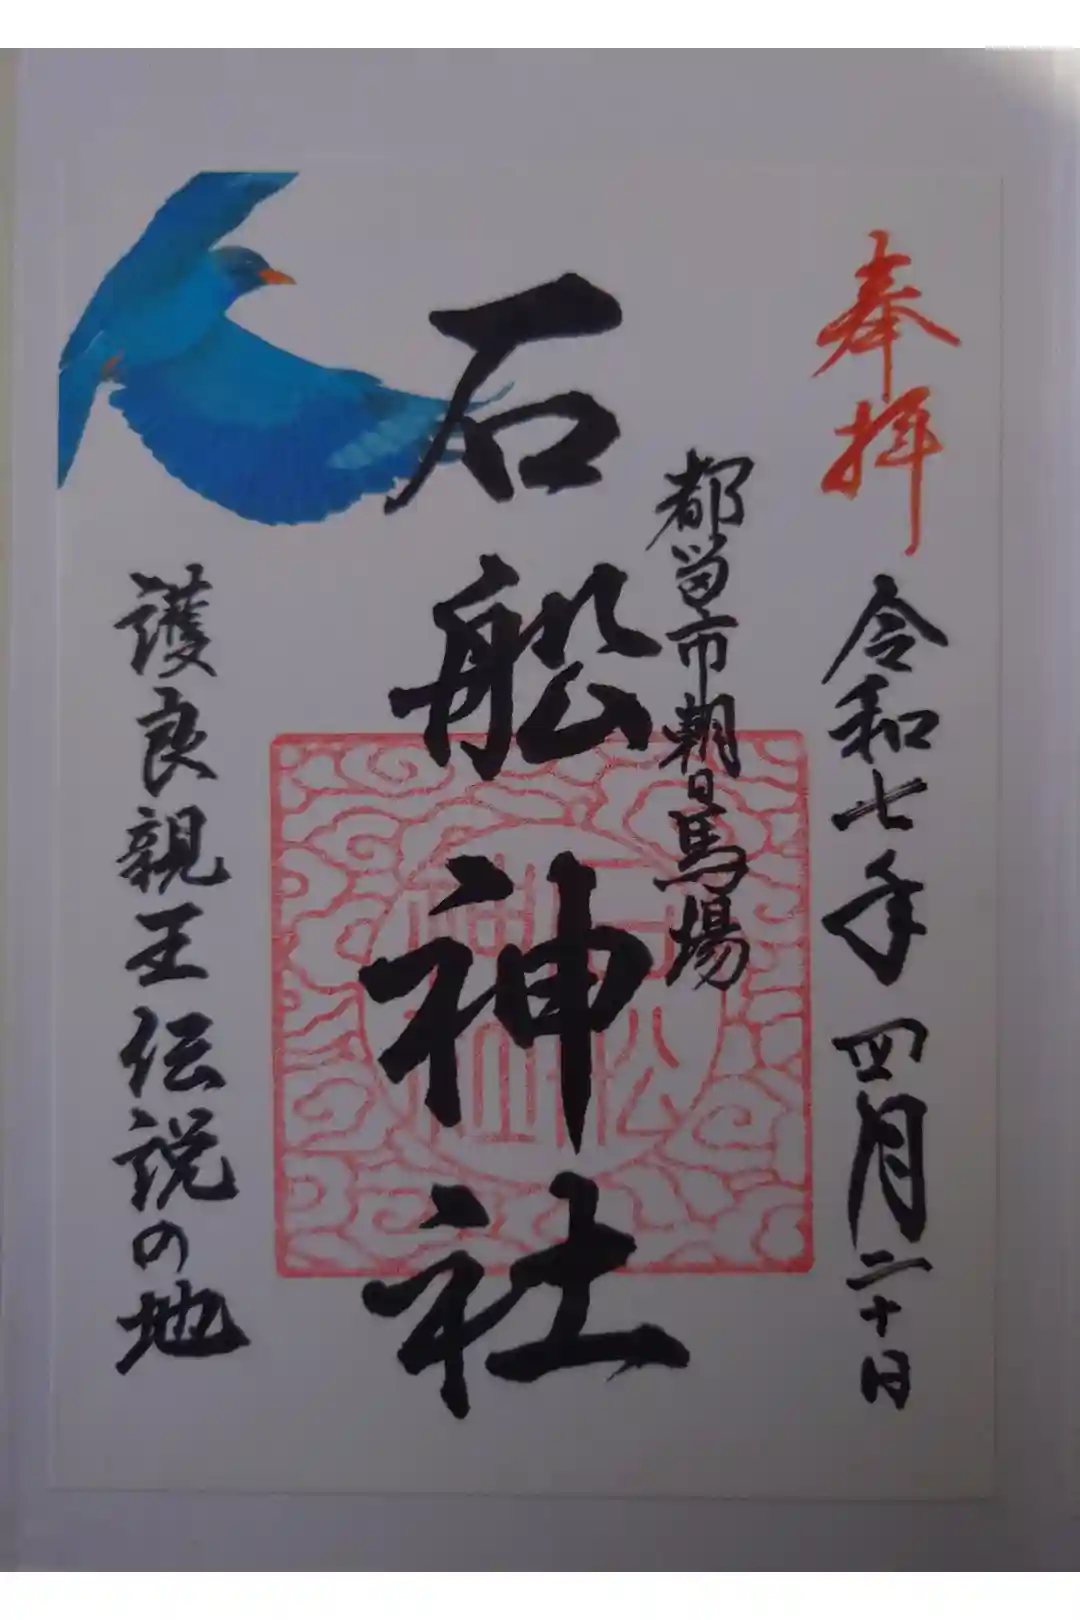 奉拝
令和七年 四月二十日
都留市朝日馬場
石船神社
護良親王伝説の地